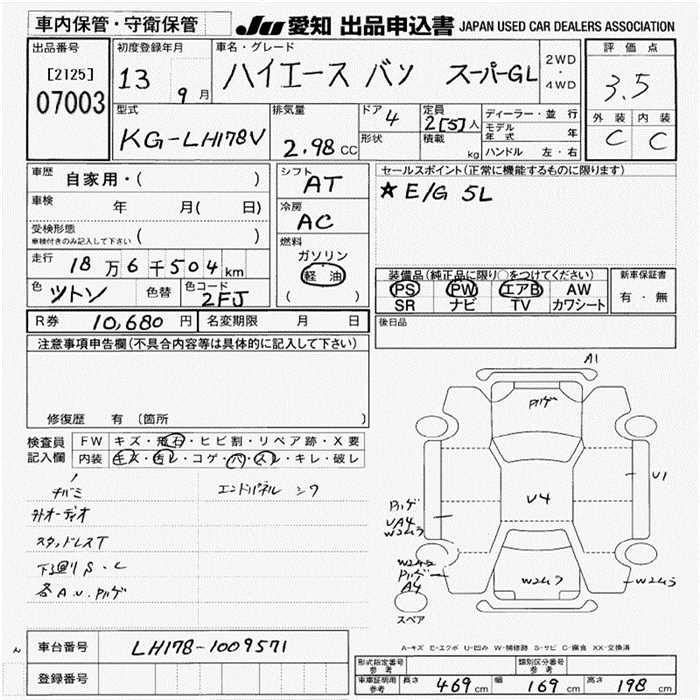 車内保管・守衛保管
JU 愛知 出品申込書 JAPAN USED CAR DEALERS ASSOCIATION
出品番号
[2125]
07003
初度登録年月
13 9月
車名・グレード
ハイエース バン スーパーGL
2WD
・
4WD
評価点
3.5
外装 内装
C C
型式
KG-LH178V
排気量
2.98 CC
ドア 4
形状
定員
2[5]人
積載
kg
ディーラー・並行
モデル年式 年
ハンドル 左・右
車歴 自家用・( )
車検 年 月( 日)
受検形態
車検付きのみ記入して下さい ( )
走行 18万6千504km
色 ツートン 色替 色コード 2FJ
シフト AT
冷房 AC
燃料
ガソリン
軽油
( )
セールスポイント(正常に機能するものに限ります)
★E/G 5L
装備品(純正品に限り○をつけてください)
PS PW エアB AW
SR ナビ TV カワシート
新車保証書
有・無
R券 10,680円 名変期限 月 日
後日品
注意事項申告欄(不具合内容等は具体的に記入して下さい)
修復歴 有(箇所 )
検査員
記入欄
FW キズ・飛石・ヒビ割・リペア跡・X要
内装 キズ・汚レ・コゲ・穴・スレ・キレ・破レ
チバミ
外オーディオ
スタッドレスT
下廻りS.C
各A.U.ハゲ
エンドパネル シワ
A1
ハゲ
U4
U1
ハゲ
UA4
W2ムラ
W2ムラ
ハゲ
A4
W2ムラ
W2ムラ
スペア
A-キズ E-エクボ U-凹み W-補修跡 S-サビ C-腐食 XX-交換済
車台番号 LH178-1009571
登録番号
形式指定番号
参考
類別区分番号
参考
車庫証明用
参考
長さ 469cm 幅 169cm 高さ 198cm